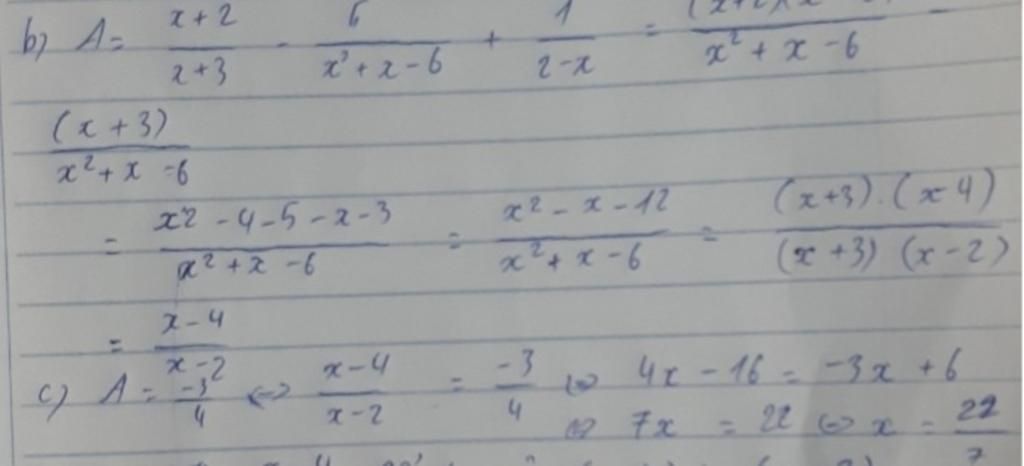 b) A = (x+2)/(x+3) - 6/(x²+x-6) + 1/(2-x) = /(x²+x-6) -
(x+3)/(x²+x-6)
= (x²-4-5-x-3)/(x²+x-6) = (x²-x-12)/(x²+x-6) = ((x+3).(x-4))/((x+3)(x-2))
= (x-4)/(x-2)
c) A = -3/4 ⇔ (x-4)/(x-2) = -3/4 ⇔ 4x-16 = -3x+6
⇔ 7x = 22 ⇔ x = 22/7